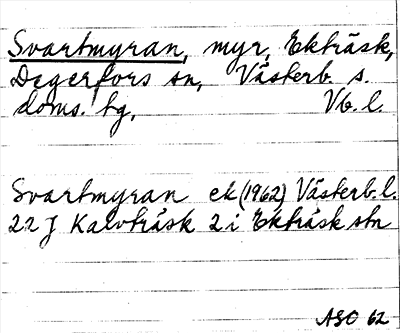 Svartmyran, myr, Ekträsk,
Degerfors sn, Västerb. s.
doms. tg, Vb. l.
Svartmyran ek (1962) Västerb. l.
22 J Kalvträsk 2 i Ekträsk sbn
ASO 62